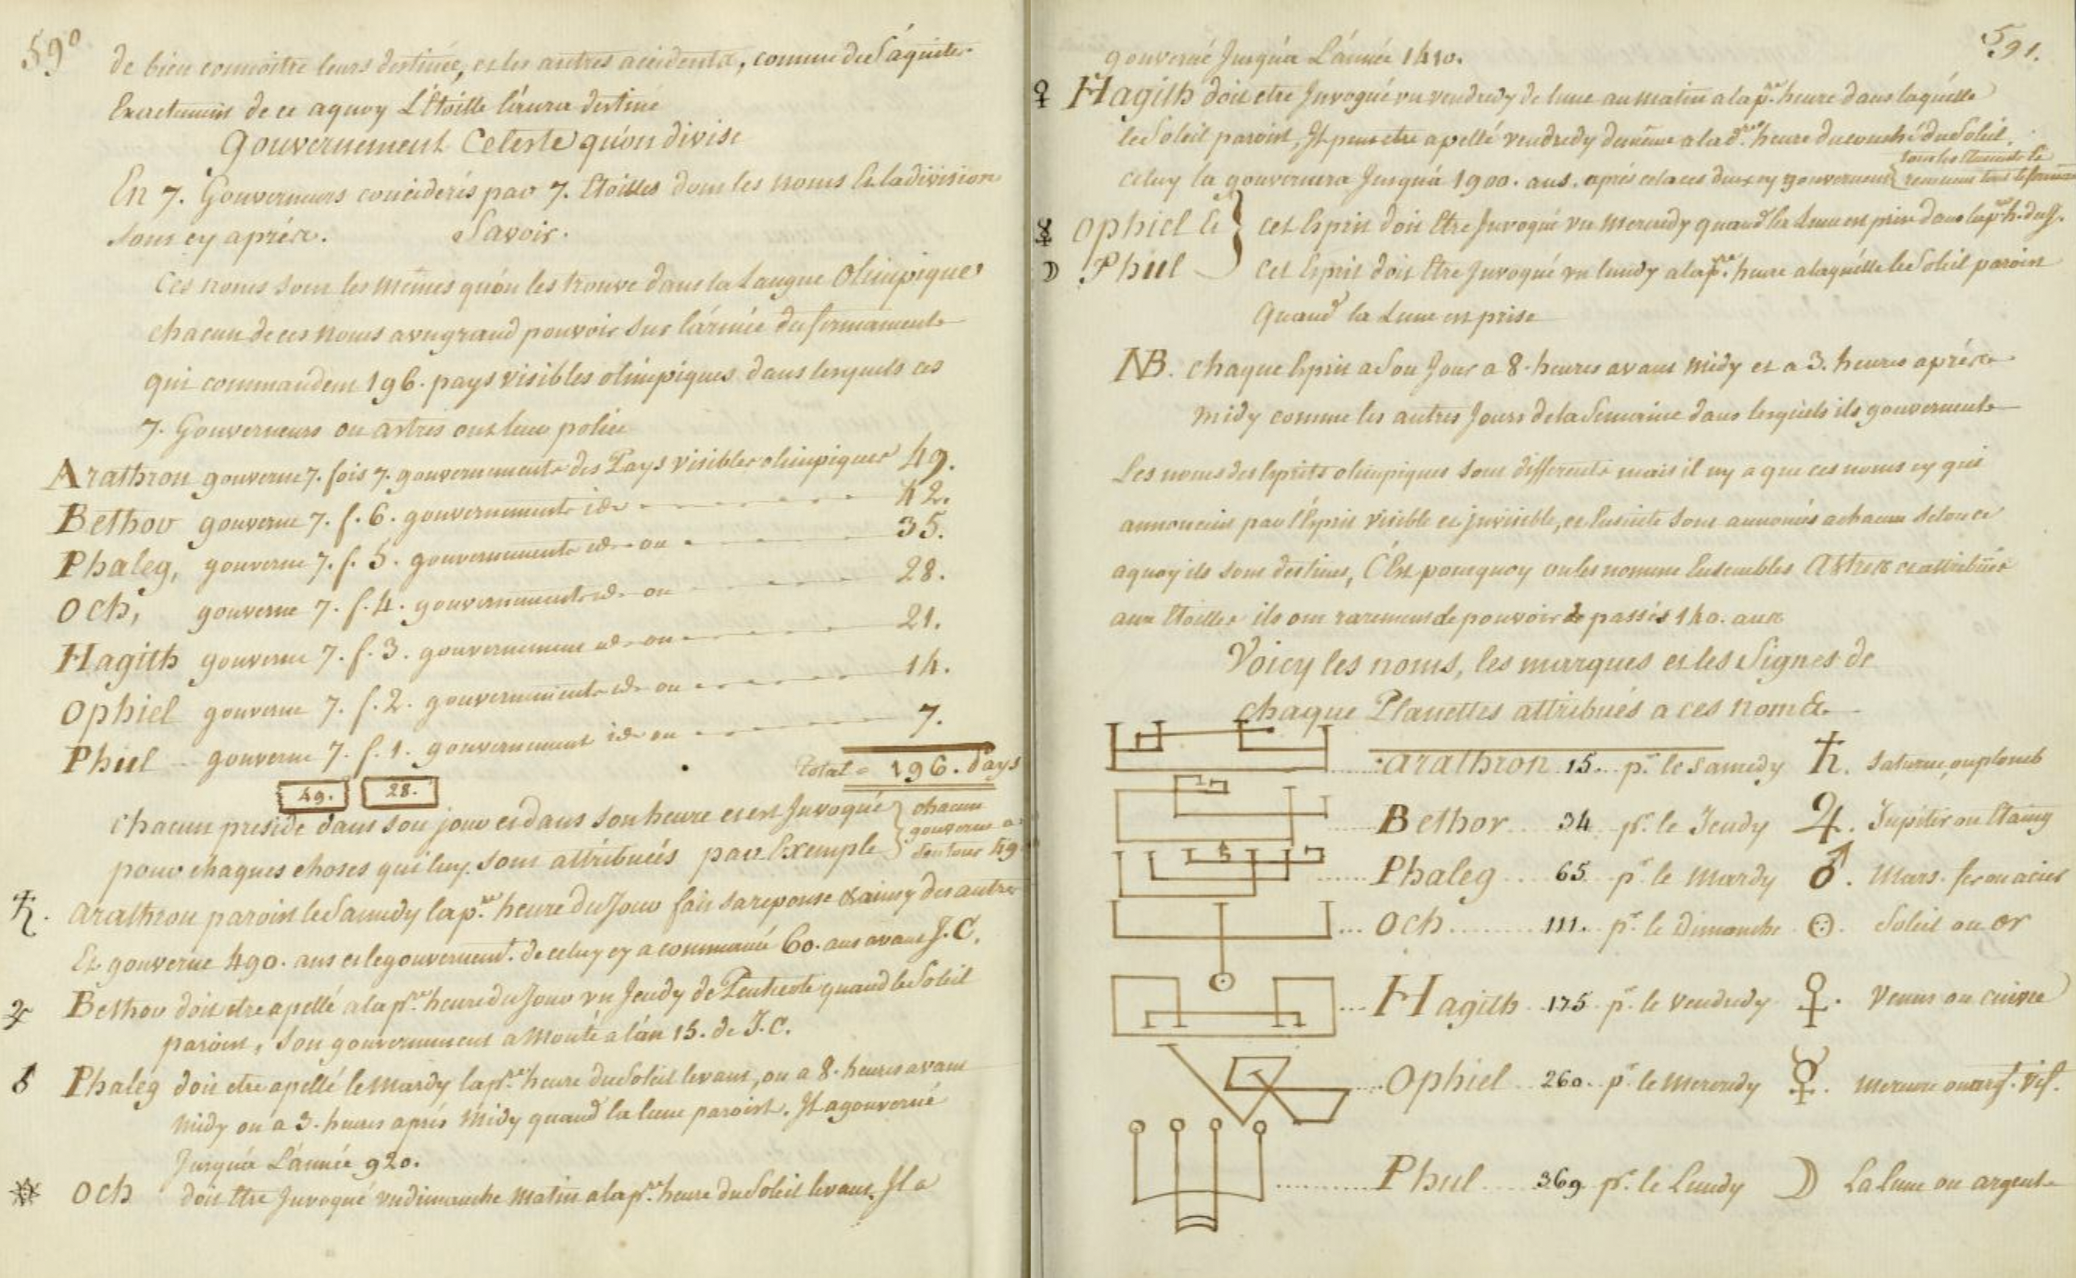 590
de bien connoitre leurs destinée, et les autres accidents, comme de s'aquiter
Exactement de ce aquoy L'Etoille l'aura destiné
Gouvernement Celeste qu'on divise
En 7. Gouverneurs considerés par 7. Etoilles dont les noms Et la division
sont cy aprés. Savoir.
Ces noms sont les mêmes qu'on les trouve dans la Langue Olimpique
chacun de ces noms a un grand pouvoir sur l'armée du firmament
qui commandent 196. pays visibles olimpiques dans lesquels ces
7. Gouverneurs ou astres ont leur police
Arathron gouverne 7. fois 7. gouvernements des Pays visibles olimpiques 49.
Bethor gouverne 7. f. 6. gouvernements id. 42.
Phaleg, gouverne 7. f. 5. gouvernements id. ou 35.
Och, gouverne 7. f. 4. gouvernements id. ou 28.
Hagith gouverne 7. f. 3. gouvernement id. ou 21.
Ophiel gouverne 7. f. 2. gouvernements id. ou 14.
Phul gouverne 7. f. 1. gouvernement id. ou 7.
Total = 196. Pays
49. 28.
chacun preside dans son jour et dans son heure et est Invoqué
pour chaques choses qui luy sont attribuées par Exemple
chacun
gouverne a
son tour 49
♄. Arathron paroist le Samedy la pre. heure du Jour fait sa reponse & ainsy des autres
Et gouverne 490. ans et le gouvernemt. de celuy cy a commancé 60. ans avant J. C.
♃ Bethor doit etre apellé a la pre. heure du Jour un Jeudy de Pentecote quand le Soleil
paroist, son gouvernement a monté a l'an 15. de J. C.
♂ Phaleg doit etre apellé le Mardy la pre. heure du Soleil levant, ou a 8. heures avant
Midy ou a 3. heures aprés Midy quand la lune paroist. Il a gouverné
Jusqu'a L'année 920.
Och doit Etre Invoqué un dimanche Matin a la pre. heure du Soleil levant. Il a
591.
gouverné Jusqu'a L'année 1410.
♀ Hagith doit etre Invoqué un vendredy de lune au matin a la pre. heure dans laquelle
le Soleil paroist, Il peut etre apellé vendredy de même a la heure du couché du Soleil.
celuy la gouvernera Jusqu'a 1900. ans. aprés cela ces deux cy gouvernent
☿ Ophiel Et } cet Esprit doit Etre Invoqué un Mercredy quand la Lune est prise dans la pre. h. du J.
☽ Phul cet Esprit doit Etre Invoqué un lundy a la pre. heure a laquelle le Soleil paroist
Quand la Lune est prise
NB. chaque Esprit a son Jour a 8. heures avant Midy et a 3. heures aprés
midy comme les autres Jours de la Semaine dans lesquels ils gouvernent
Les noms des Esprits olimpiques sont differents mais il ny a que ces noms cy qui
annoncent par l'Esprit visible et invisible, et Ensuite sont annoncés a chacun selon ce
aquoy ils sont destinés, C'Est pourquoy on les nomme Ensembles Astres et attribués
aux Etoilles ils ont rarement de pouvoir passés 140. ans
Voicy les noms, les marques et les Signes de
chaque Planettes attribués a ces noms.
Arathron 15. pr. le Samedy ♄. Saturne, ou plomb
Bethor 34 pr. le Jeudy ♃. Jupiter ou Etaing
Phaleg 65 pr. le Mardy ♂. Mars. fer ou acier
Och 111. pr. le Dimanche ☉. Soleil ou or
Hagith 175 pr. le Vendredy ♀. Venus ou cuivre
Ophiel 260. pr. le Mercredy ☿. Mercure ou argt. vif.
Phul 369 pr. le Lundy ☽ La lune ou argent